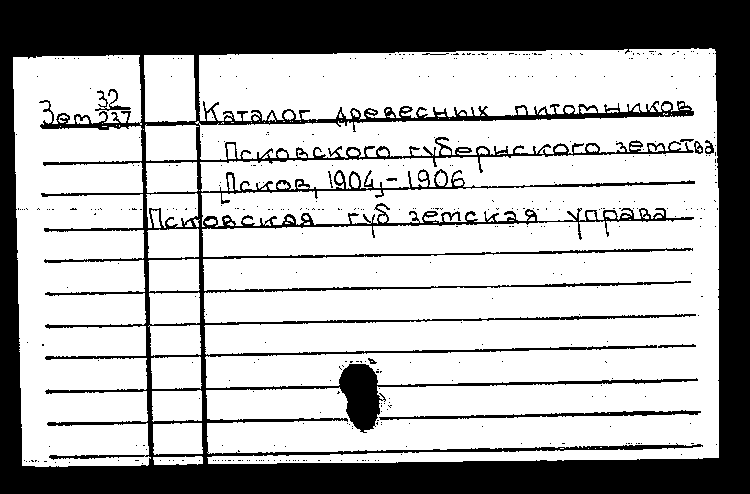 Зем 32/237 Каталог древесных питомников
Псковского губернского земства
[Псков, 1904,-1906
Псковская губ земская управа